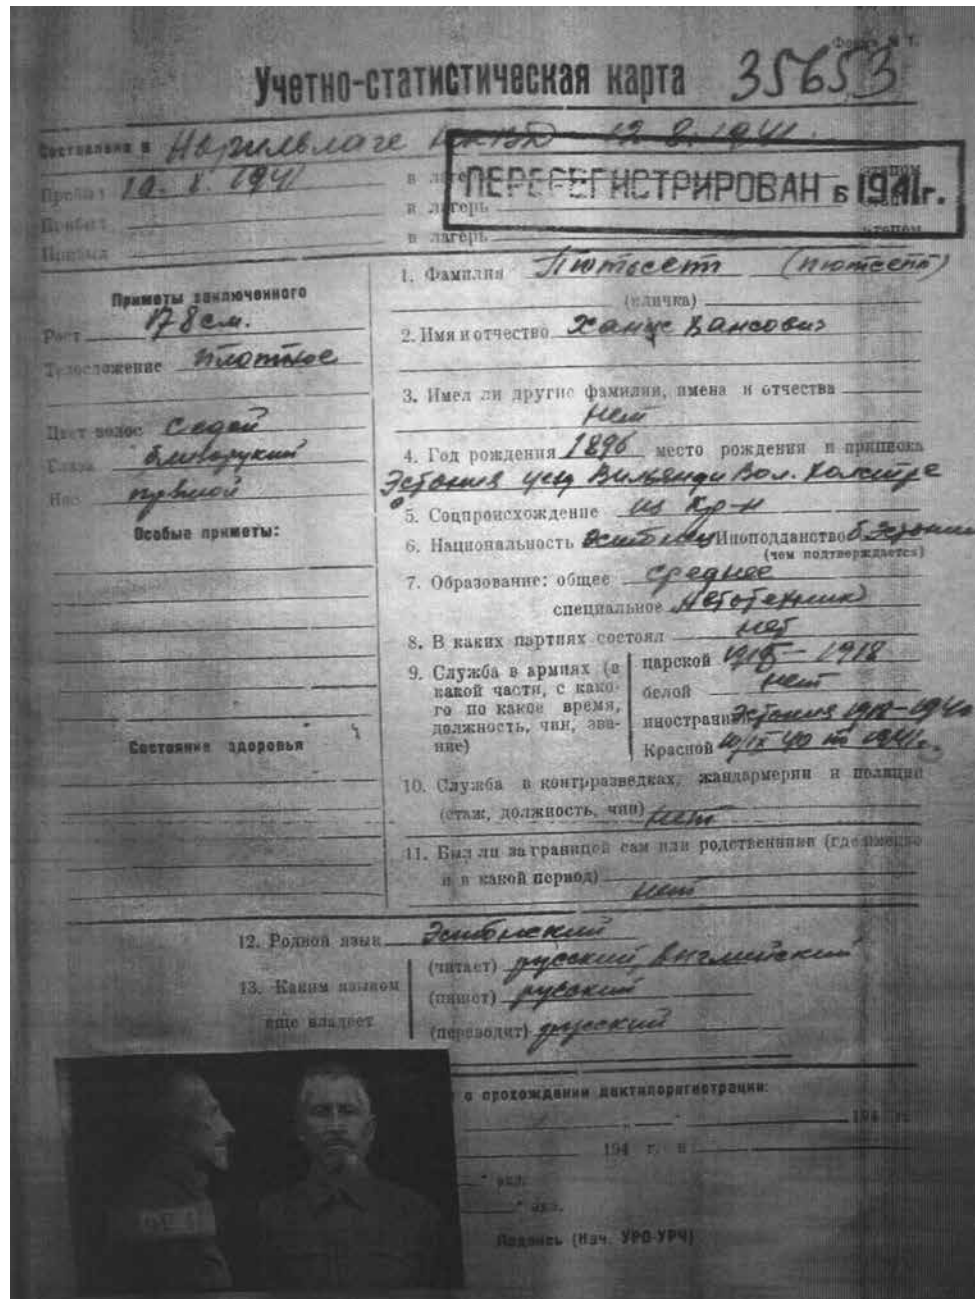 Форма № 1.
Учетно-статистическая карта 35653
Составлена в Норильлаге НКВД 12.8.1941.
Прибыл 10.X.1941 в лагерь этапом
ПЕРЕРЕГИСТРИРОВАН в 1941г.
Прибыл в лагерь этапом
Прибыл в лагерь этапом
Приметы заключенного
Рост 178 см.
Телосложение плотное
Цвет волос Седой
Глаза близорукий
Нос прямой
Особые приметы:
Состояние здоровья
1. Фамилия Пютьсепп (пютсепп)
(кличка)
2. Имя и отчество Хансович
3. Имел ли другие фамилии, имена и отчества
нет
4. Год рождения 1896 место рождения и приписка
Эстония уезд Вильянди Вол. Холстре
5. Соцпроисхождение из Кр-н
6. Национальность эстонец Иноподданство б. Эстонии
(чем подтверждается)
7. Образование: общее среднее
специальное
8. В каких партиях состоял нет
9. Служба в армиях (в какой части, с како-
го по какое время,
должность, чин, зва-
ние)
царской 1918
белой нет
иностран Эстония 1918-1940
Красной 10/IX 40 по 1941г.
10. Служба в контрразведках, жандармерии и полиции
(стаж, должность, чин) нет
11. Был ли за границей сам или родственники (где именно
и в какой период)
нет
12. Родной язык Эстонский
13. Каким языком
еще владеет
(читает) русский, английский
(пишет) русский
(переводит) русский
о прохождении дактилорегистрации:
194 г.
194 г. в
" экз.
" экз.
Подпись (Нач. УРО-УРЧ)